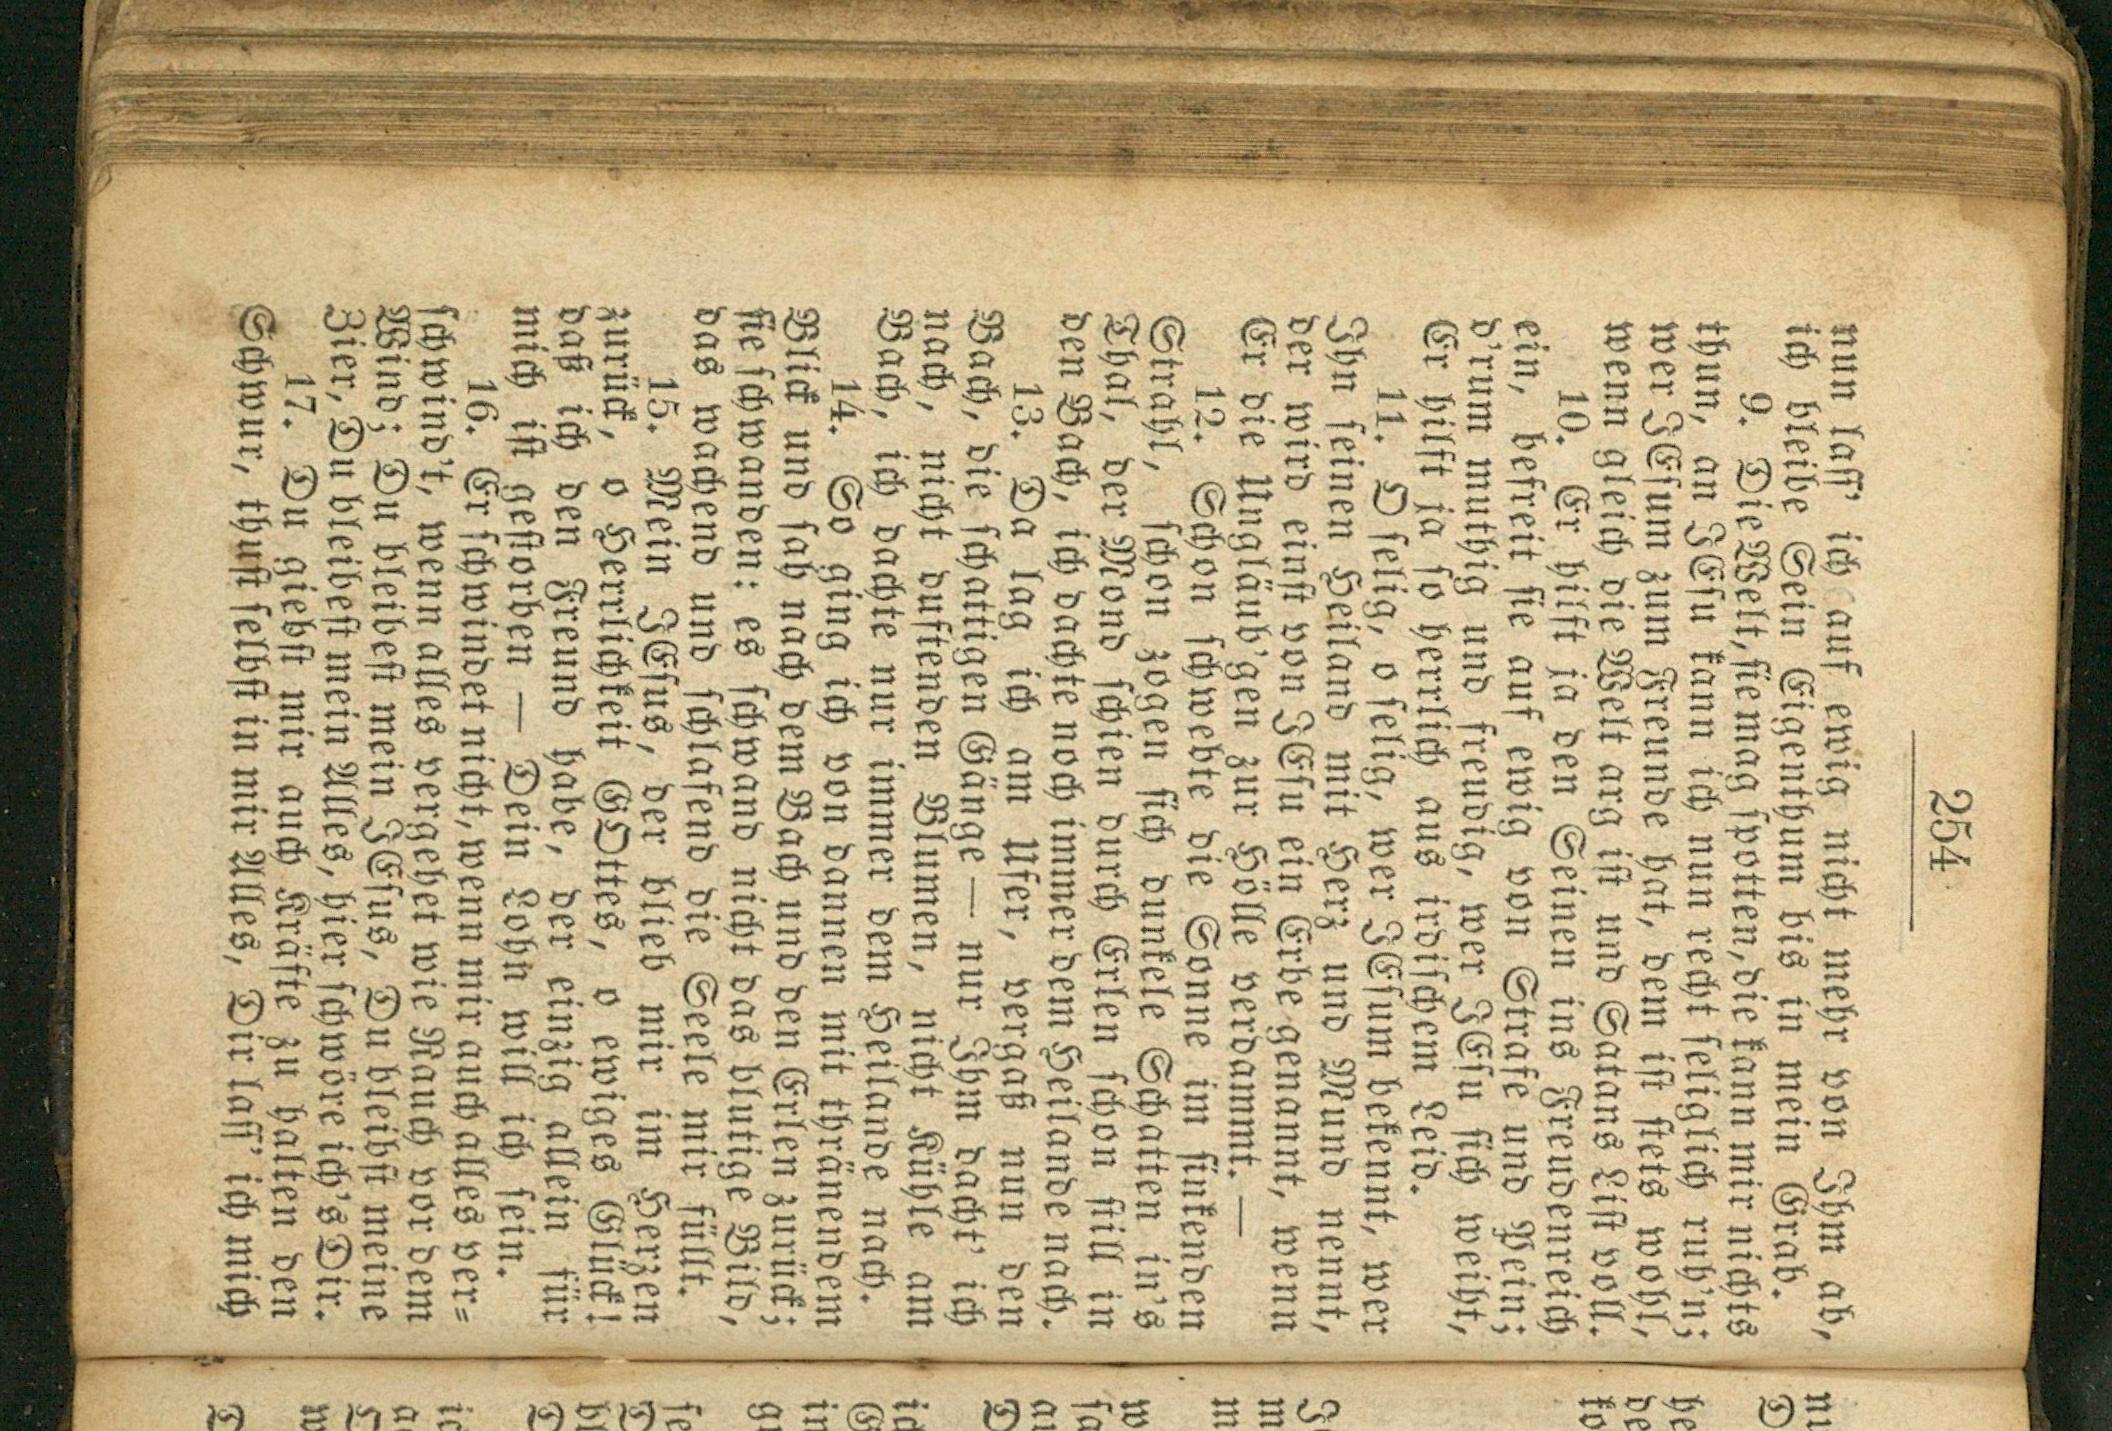 254
nun lass' ich auf ewig nicht mehr von Ihm ab,
ich bleibe Sein Eigenthum bis in mein Grab.
9. Die Welt, sie mag spotten, die kann mir nichts
thun, an JEsu kann ich nun recht seliglich ruh'n;
wer JEsum zum Freunde hat, dem ist stets wohl,
wenn gleich die Welt arg ist und Satans List voll.
10. Er hilft ja den Seinen ins Freudenreich
ein, befreit sie auf ewig von Strafe und Pein;
d'rum muthig und freudig, wer JEsu sich weiht,
Er hilft ja so herrlich aus irdischem Leid.
11. O selig, o selig, wer JEsum bekennt, wer
Ihn seinen Heiland mit Herz und Mund nennt,
der wird einst von JEsu ein Erbe genannt, wenn
Er die Ungläub'gen zur Hölle verdammt. —
12. Schon schwebte die Sonne im sinkenden
Strahl, schon zogen sich dunkele Schatten in's
Thal, der Mond schien durch Erlen schon still in
den Bach, ich dachte noch immer dem Heilande nach.
13. Da lag ich am Ufer, vergaß nun den
Bach, die schattigen Gänge — nur Ihm dacht' ich
nach, nicht duftenden Blumen, nicht Kühle am
Bach, ich dachte nur immer dem Heilande nach.
14. So ging ich von dannen mit thränendem
Blick und sah nach dem Bach und den Erlen zurück;
sie schwanden: es schwand nicht das blutige Bild,
das wachend und schlafend die Seele mir füllt.
15. Mein JEsus, der blieb mir im Herzen
zurück, o Herrlichkeit GOttes, o ewiges Glück!
daß ich den Freund habe, der einzig allein für
mich ist gestorben — Dein Lohn will ich sein.
16. Er schwindet nicht, wenn mir auch alles ver=
schwind't, wenn alles vergehet wie Rauch vor dem
Wind; Du bleibest mein JEsus, Du bleibst meine
Zier, Du bleibest mein Alles, hier schwöre ich's Dir.
17. Du giebst mir auch Kräfte zu halten den
Schwur, thust selbst in mir Alles, Dir lass' ich mich